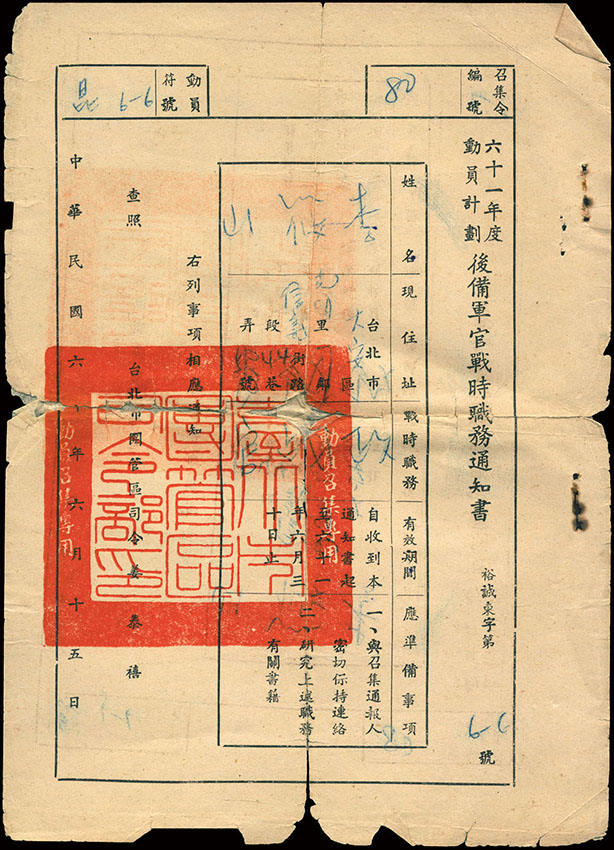 召集令編號
80
動員符號
昆 6-6
六十一年度動員計劃後備軍官戰時職務通知書
裕誠東字第 6-6 號
姓名
現住址
戰時職務
有效期間
應準備事項
李
山
台北市 大安區
里 鄰
信義 街路
段 44 巷
弄 號
自收到本
通知書起
至六十一
年六月三
十日止
一、與召集通報人
密切保持連絡
二、研究上述職務
有關書籍
右列事項相應通知
查照
台北市團管區司令姜泰禧
中華民國六 年六月十五日
動員召集專用
動員召集專用
台北市團管區司令部印